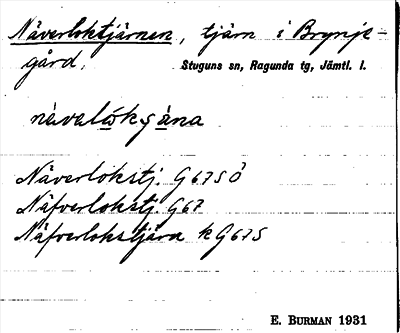 Näverloktjärnen, tjärn i Brynje-
gård. Stuguns sn, Ragunda tg, Jämtl. l.
nàvalókṣána
Näverlokstj. G67SÖ
Näfverlokstj. G67
Näfverlokstjärn kG67S
E. BURMAN 1931